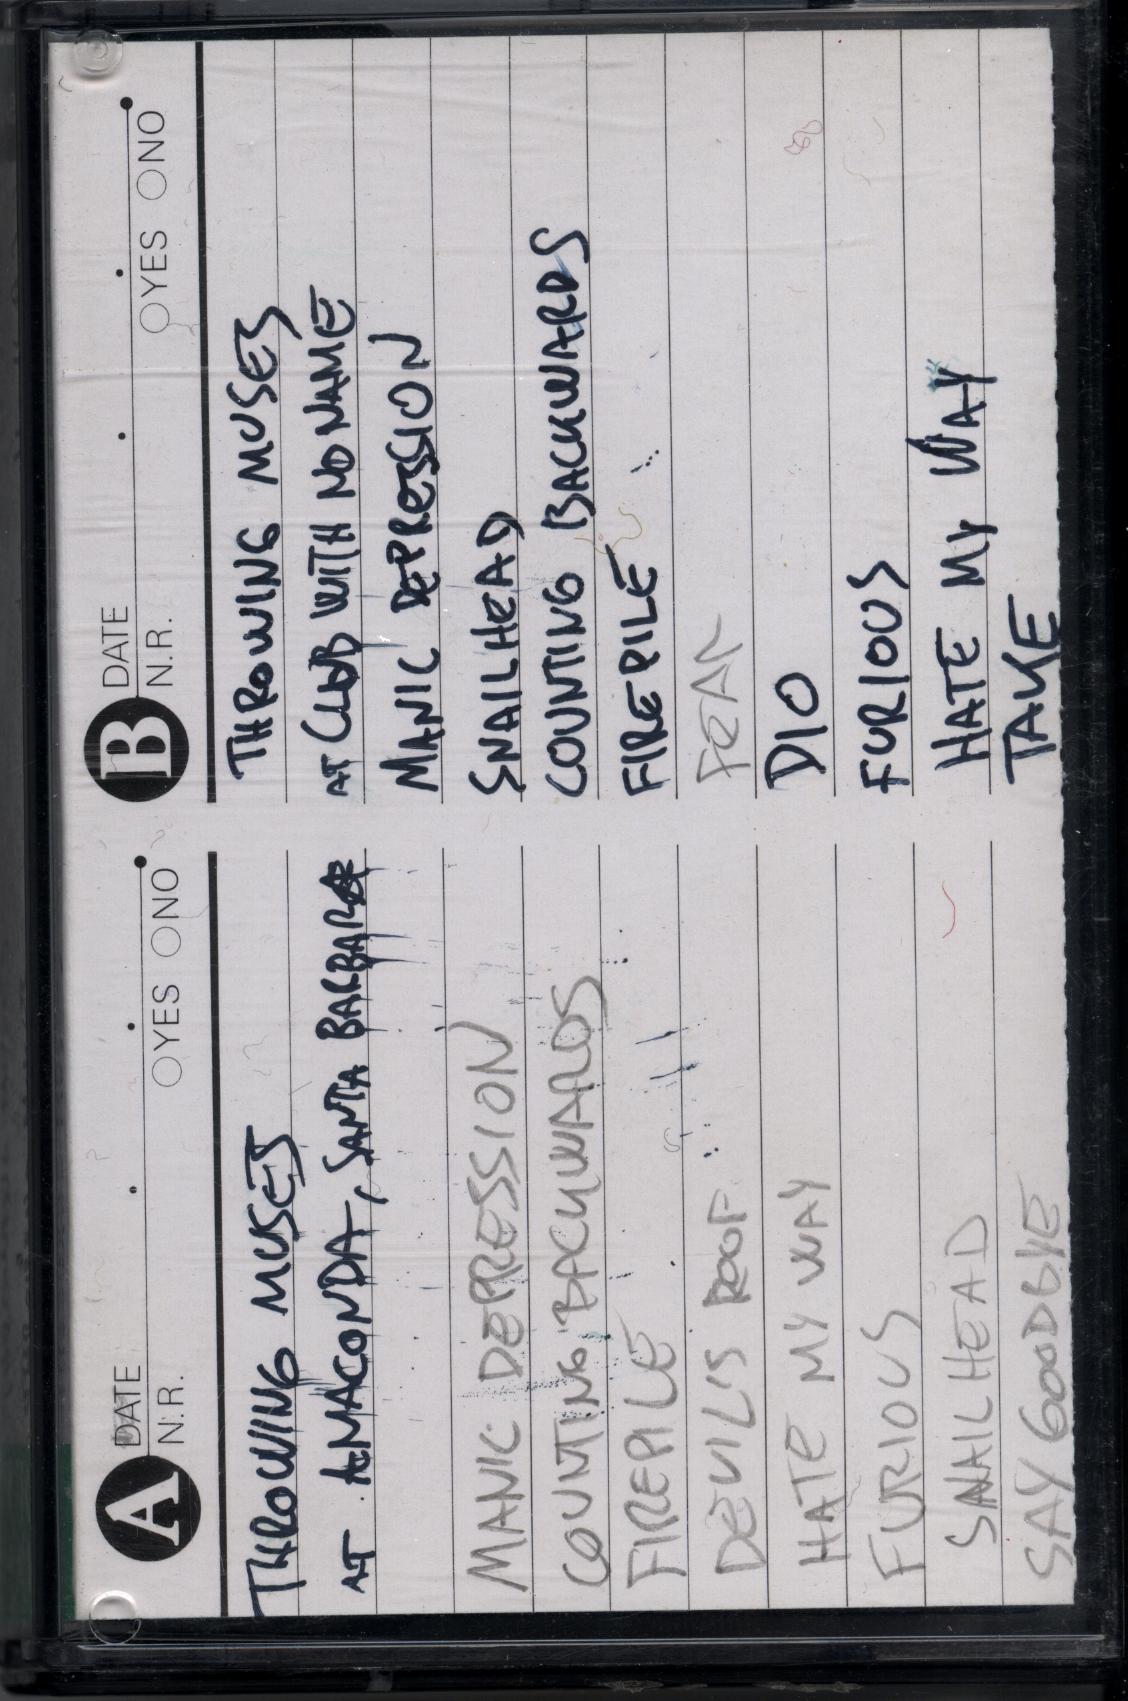 A DATE
N.R.
YES NO
THROWING MUSES
AT AMACONDA, SANTA BARBARA
MANIC DEPRESSION
COUNTING BACKWARDS
FIREPILE
DEVILS ROOF
HATE MY WAY
FURIOUS
SNAILHEAD
SAY GOODBYE
B DATE
N.R.
YES NO
THROWING MUSES
AT CLUB WITH NO NAME
MANIC DEPRESSION
SNAILHEAD
COUNTING BACKWARDS
FIREPILE
FEAR
DIO
FURIOUS
HATE MY WAY
TAKE